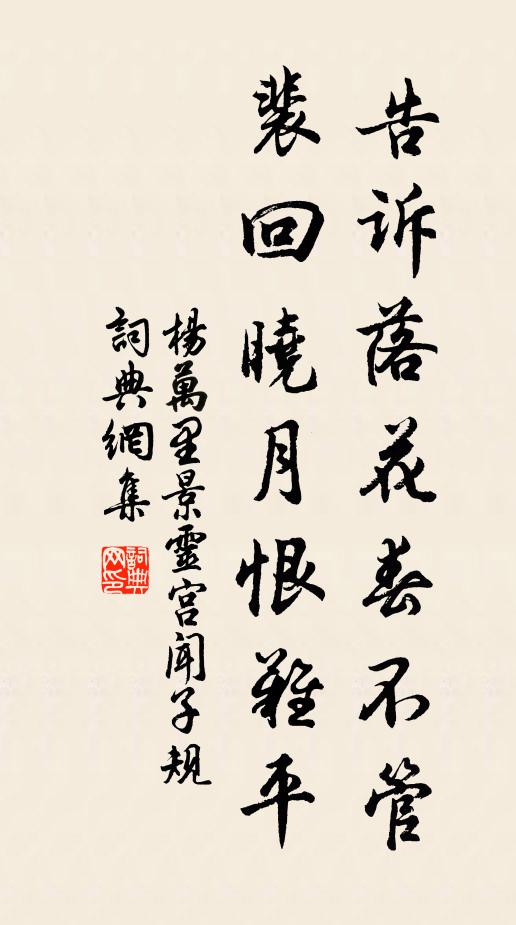 告诉落花春不管
裴回曉月恨難平
楊萬里景靈宮聞子規
詞典網集
詞典网印